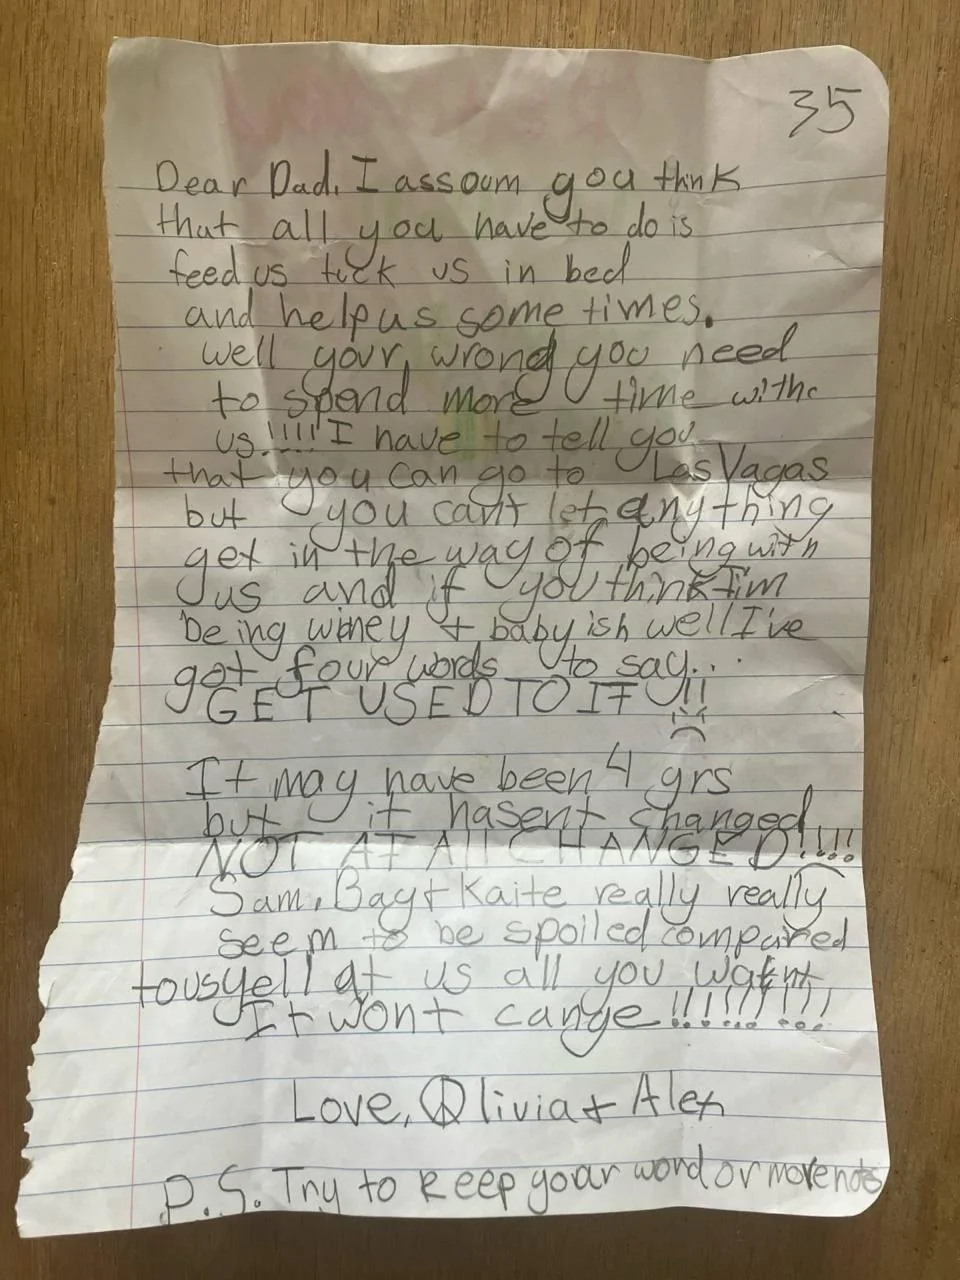 35
Dear Dad. I assoum you think
that all you have to do is
feed us tuck us in bed
and help us some times.
well your, wrong you need
to spend more time withe
us!!!!! I have to tell you
that you can go to Las Vagas
but you can't let anything
get in the way of being with
us and if you think I'm
being winey + baby ish well I've
got four words to say...
GET USED TO IT !!
It may have been 4 yrs
but it hasent changed
NOT AT All CHANGED!!!!
Sam, Bay + Kaite really really
seem to be spoiled compared
to us yell at us all you want
It wont cange!!!!!!!!!
Love, Olivia + Alex
P.S. Try to keep your word or more notes